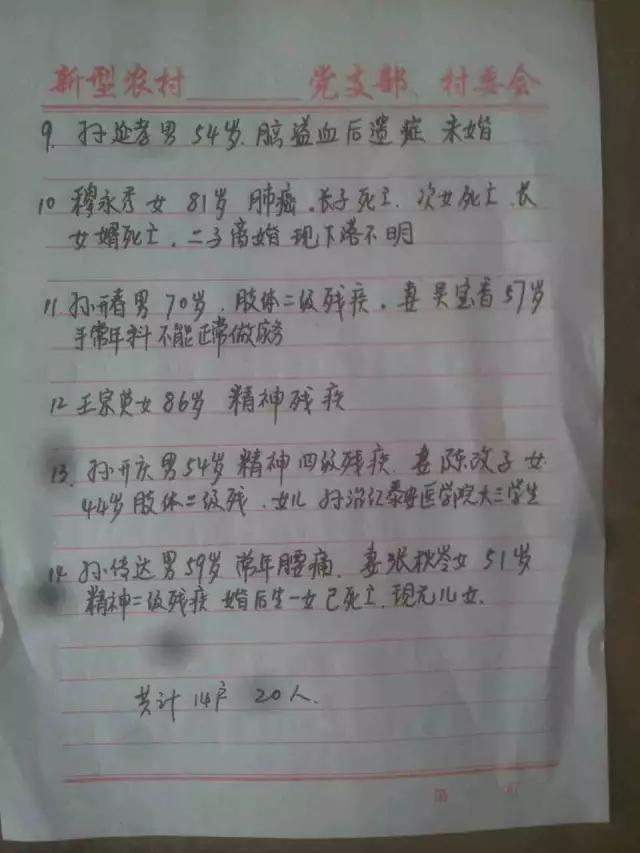 新型农村______党支部、村委会
9. 孙延孝男 54岁. 脑溢血后遗症 未婚
10 穆永秀女 81岁 肺癌.长子死亡.次女死亡.长
女婿死亡.二子离婚 现下落不明
11. 孙开春男 70岁.肢体二级残疾.妻吴宝香57岁
手常年抖不能正常做
12 王宗英女86岁 精神残疾
13. 孙开庆男54岁精神四级残疾.妻陈改子 女
44岁肢体二级残.女儿 孙 泰安医学院大三学生
14. 孙传达男59岁常年腰痛.妻张秋岑女 51岁
精神二级残疾 婚后生一女已死亡.现无儿女.
共计14户 20人.
第